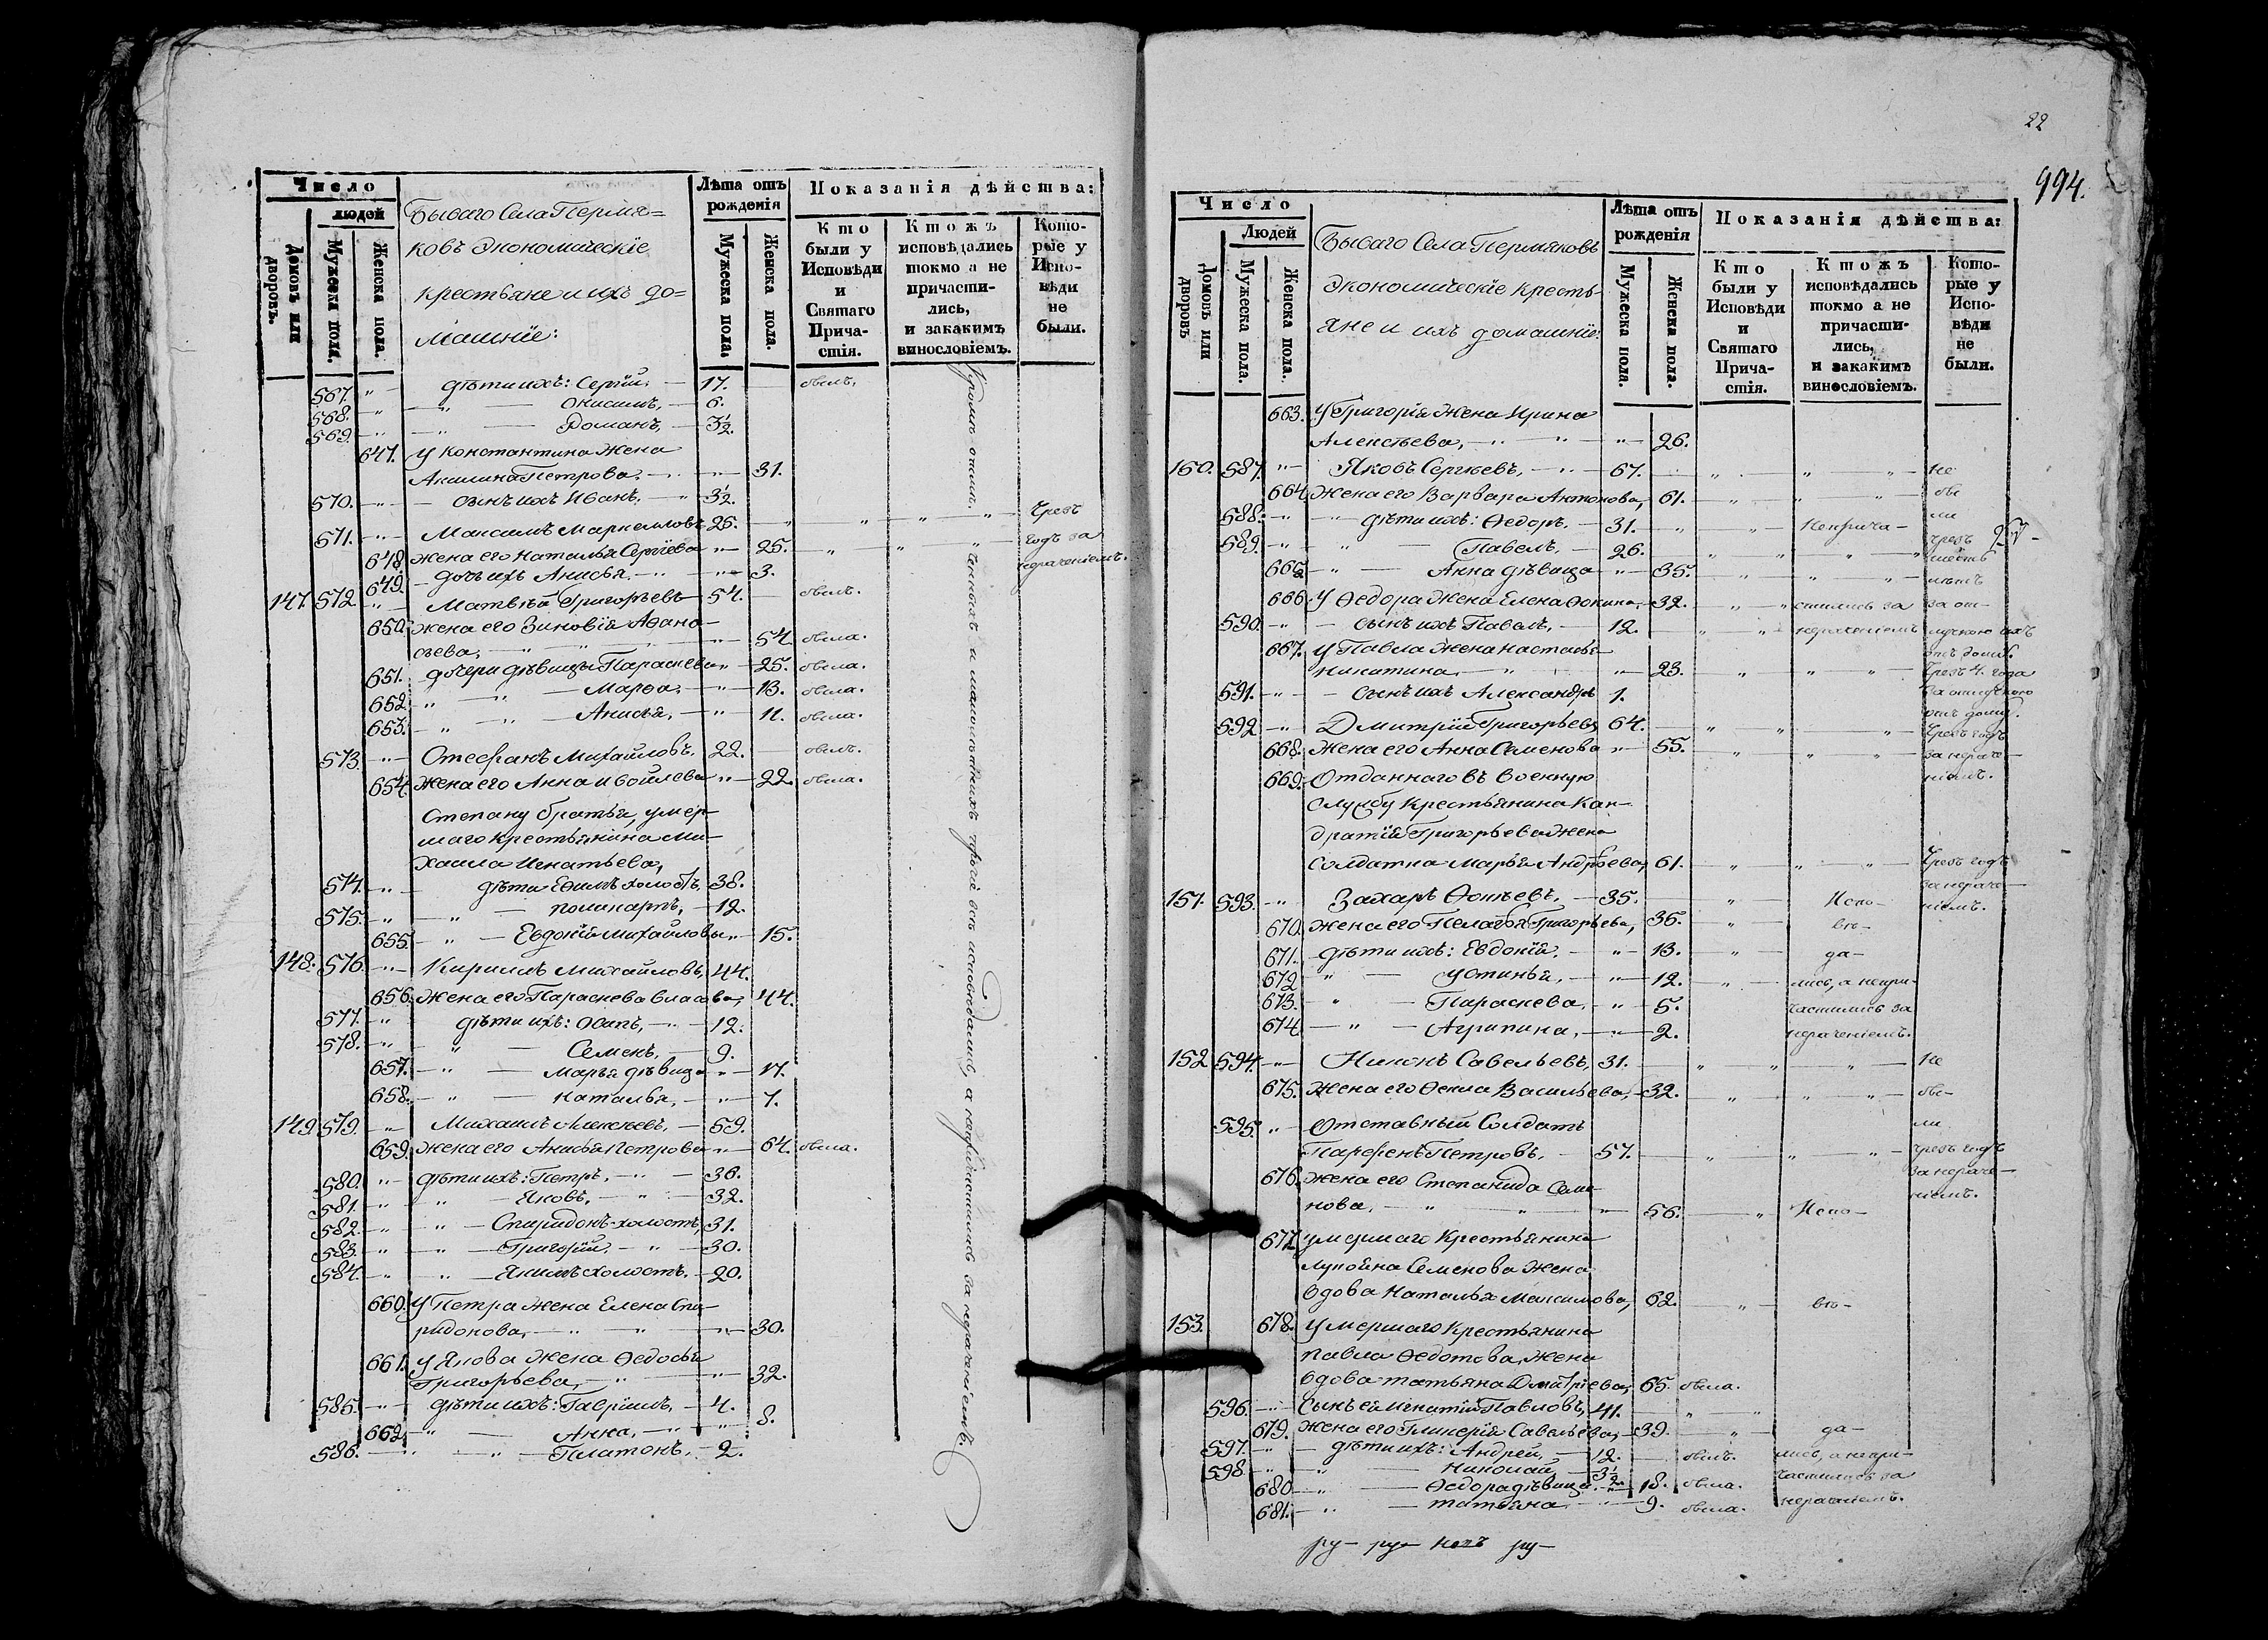 Число
людей
Домовъ или дворовъ.
Мужеска пола.
Женска пола.
Бысаго Села Пермя=
ковъ Экономическіе
крестьяне и ихъ до=
машніе:
Лѣта отъ рожденія
Мужеска пола.
Женска пола.
Показанія дѣйства:
Кто были у Исповѣди и Святаго Причастія.
Кто жъ исповѣдались токмо а не причастились, и закакимъ винословіемъ.
Которые у Исповѣди не были.
567. " дѣти ихъ: Сергій, 17. былъ.
568. " " Онисимъ, 6.
569. " " Романъ, 3½.
647. У Константина Жена
Акилина Петрова, " 31.
570. " сынъ ихъ Иванъ, 3½.
571. " Максимъ Маркелловъ 25. " " " " Чрезъ
648. Жена его Наталья Сергіева " 25. " " " годъ за
649. дочь ихъ Анисья, " 3. нераченіемъ.
147. 572. " Матвѣй Григорьевъ 54. былъ.
650. Жена его Зиновія Афана-
сьева, " " " 54. была.
651. дочери дѣвицы Параскева " 25. была.
652. " " Марфа, " 13. была.
653. " " Анисья, " 11. была.
573. " Стефанъ Михайловъ, 22. былъ.
654. Жена его Анна Исоилева " 22. была.
Степану братья, умер-
шаго крестьянина Ми-
хаила Игнатьева,
574. " дѣти Ефимъ холостъ, 38.
575. " " поликарпъ, 12.
655. " Евдокія Михайлова " 15.
148. 576. " Кирилъ Михайловъ, 44.
656. Жена его Параскева Власова, 44.
577. " дѣти ихъ: Осипъ, 12.
578. " " Семенъ, 9.
657. " Марья дѣвица " 17.
658. " Наталья, " 7.
149. 579. " Михаилъ Алексѣевъ, 59.
659. Жена его Анисья Петрова " 64. была.
580. " дѣти ихъ: Петръ, " 36.
581. " " Яковъ, " 32.
582. " " Спиридонъ холостъ, 31.
583. " " Григорій, " 30.
584. " " Якимъ холостъ, 20.
660. У Петра Жена Елена Спи-
ридонова, " " " 30.
661. У Якова Жена Федосья
Григорьева, " " 32.
585. " дѣти ихъ: Гаврiилъ, 4.
662. " Анна, " " 8.
586. " " Платонъ, 2.
Кромѣ отмѣченныхъ и малолѣтнихъ прочіе всѣ исповѣдались, а непричастились за нераченіемъ.
22
994.
Число
Людей
Домовъ или дворовъ
Мужеска пола.
Женска пола.
Бысаго Села Пермяковъ
Экономическіе кресть-
яне и ихъ домашніе:
Лѣта отъ рожденія
Мужеска пола.
Женска пола.
Показанія дѣйства:
Кто были у Исповѣди и Святаго Причастія.
Кто жъ исповѣдались токмо а не причастились, и закакимъ винословіемъ.
Которые у Исповѣди не были.
663. У Григорія Жена Ирина
Алексѣева, " " " 26.
150. 587. " Яковъ Сергѣевъ, " 67. " " " не
664. Жена его Варвара Антонова, 61. " " " бы
588. " " дѣти ихъ: Федоръ, 31. " " Неприча- ли
589. " " Павелъ, 26. " " " " чрезъ
665. " Анна дѣвица " 35. " " " шесть лѣтъ
666. У Федора Жена Елена Фокина, 32. " " стились за за от-
590. " сынъ ихъ Павелъ, 12. " " нераченіемъ лучкою ихъ отъ дому.
667. У Павла Жена Настасья
Никитина, " " 23. " " " Чрезъ 4. года за отлучкою
591. " сынъ ихъ Александръ 1. отъ дому.
592. " Дмитрій Григорьевъ 64. " " " Чрезъ годъ
668. Жена его Анна Семенова " 55. " " " за нераче-
669. Отданнаго въ военную ніемъ.
службу крестьянина Кон-
дратія Григорьева Жена
солдатка Марья Андрѣева, 61. " " " Чрезъ годъ за нераче-
151. 593. " Захаръ Фотѣевъ, 35. " Испо- ніемъ.
670. Жена его Пелагея Григорьева, 35. " вѣ-
671. дѣти ихъ: Евдокія, " 13. " да-
672. " Устинья, " 12. " лись, а непри-
673. " Параскева, " 5. частились за
674. " Агрипина, " 2. нераченіемъ.
152. 594. " Никонъ Савельевъ, 31. " " " Не
675. Жена его Фекла Васильева, 32. " " " бы-
595. " Отставный Солдатъ ли
Парфенъ Петровъ, 57. " " " чрезъ годъ за нераче-
676. Жена его Степанида Семе- ніемъ.
нова, " " " 56. " Испо-
677. умершаго Крестьянина
Лупойна Семенова Жена
вдова Наталья Максимова, 62. " вѣ-
153. 678. Умершаго Крестьянина
Павла Федотова, Жена
вдова татьяна Дмитріева, 65. была.
596. " Сынъ ея Игнатій Павловъ, 41. " "
679. Жена его Гликерія Савельева, 39. " да-
597. " дѣти ихъ: Андрей, 12. былъ. лись, а непри-
598. " " Николай, 3½. частились за
680. " Федора дѣвица " 18. была.
681. " татьяна " 9. была. нераченіемъ.